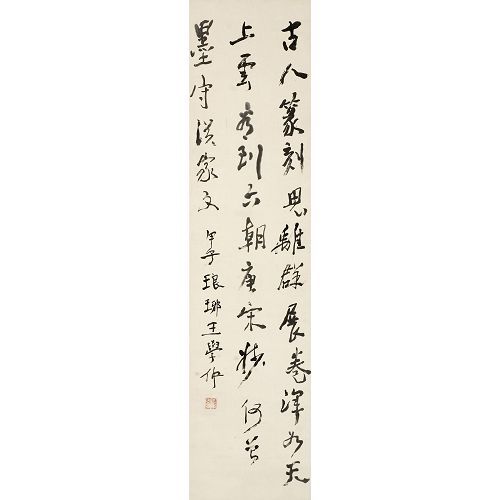 古人篆刻思離群展卷渾如天
上雲看到六朝唐宋妙何曾
墨守漢家文 午子琅琊王學仲